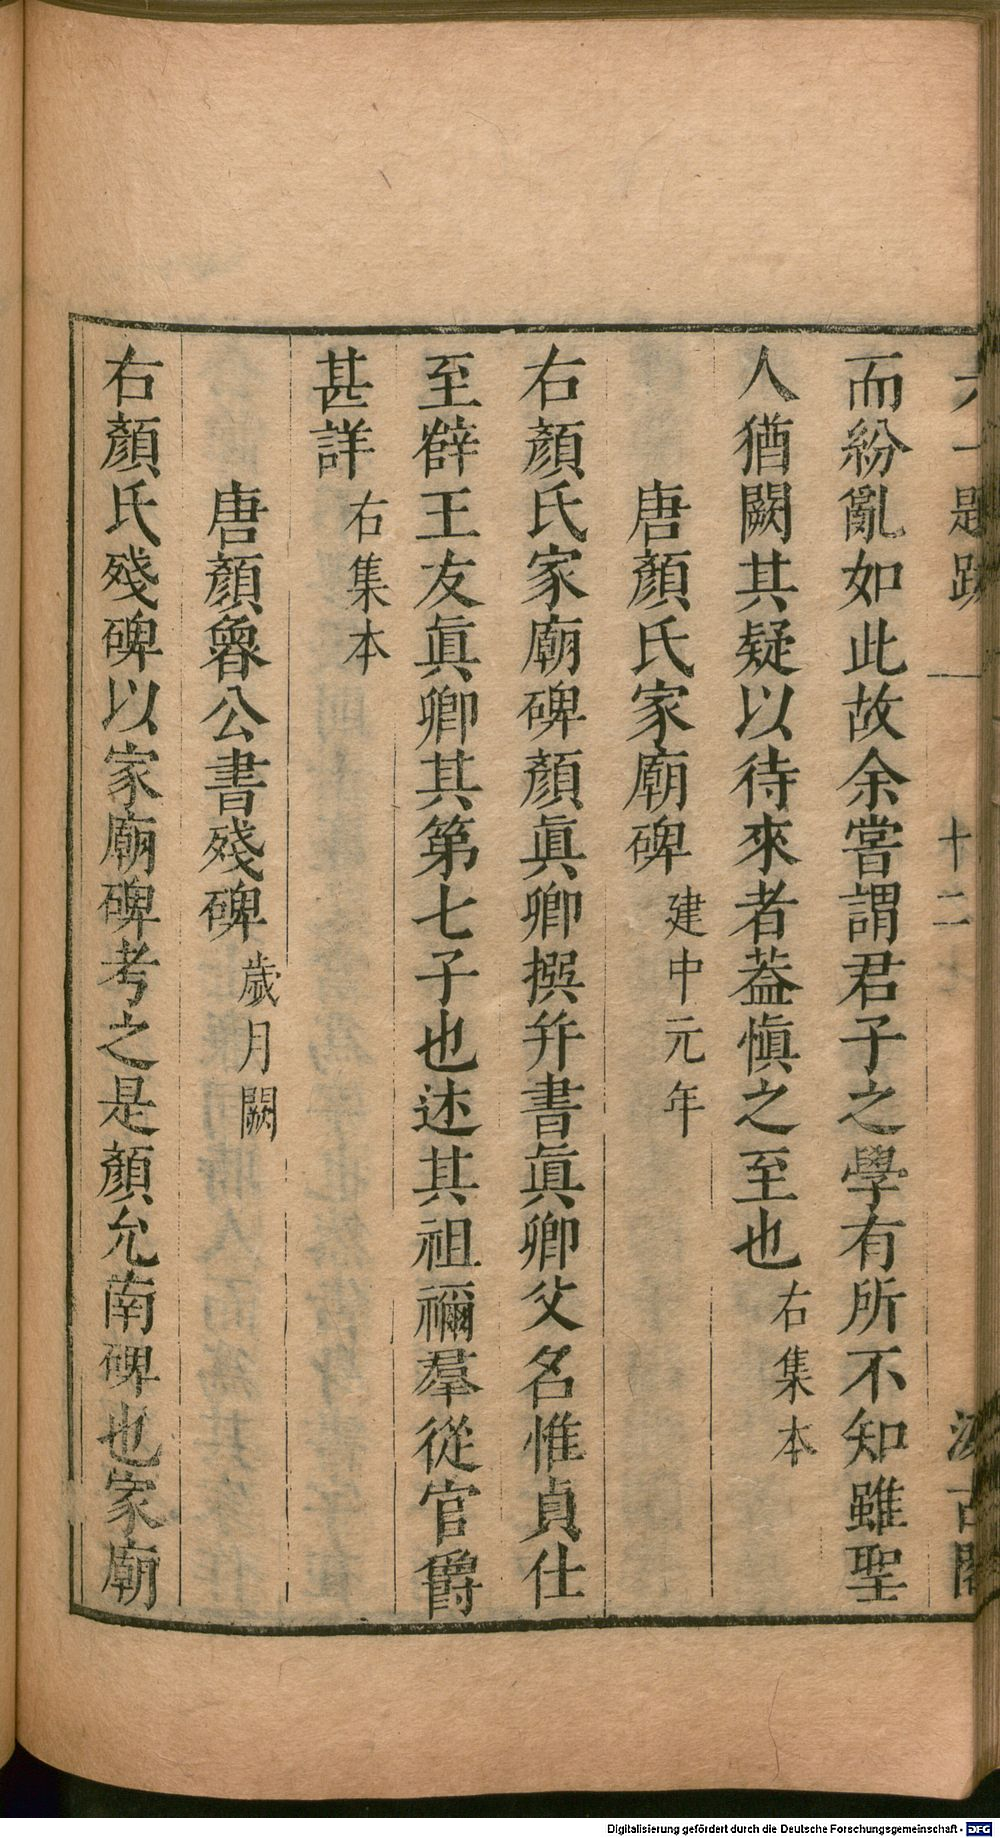 六一題跋 十二 汲古閣
而紛亂如此故余嘗謂君子之學有所不知雖聖
人猶闕其疑以待來者葢愼之至也 右集本
唐顏氏家廟碑 建中元年
右顏氏家廟碑顏眞卿撰幷書眞卿父名惟貞仕
至薛王友眞卿其第七子也述其祖禰羣從官爵
甚詳 右集本
唐顏魯公書殘碑 歲月闕
右顏氏殘碑以家廟碑考之是顏允南碑也家廟
Digitalisierung gefördert durch die Deutsche Forschungsgemeinschaft - DFG